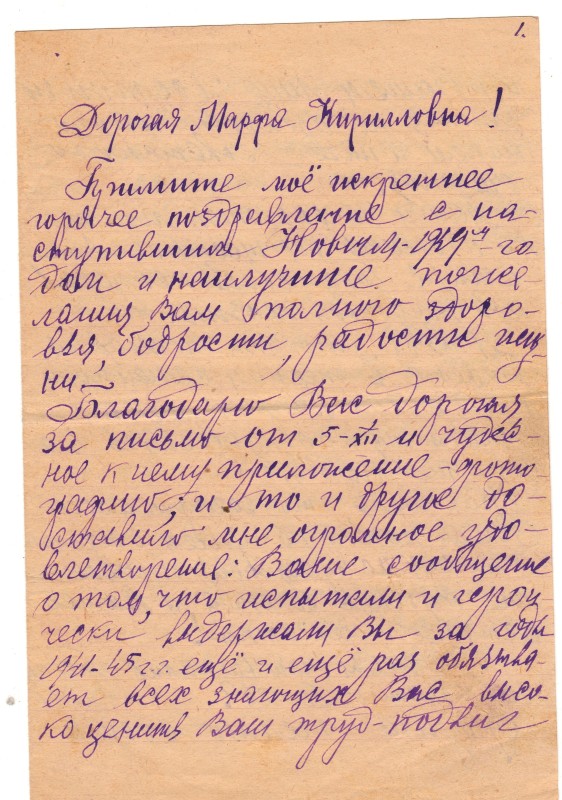 1.
Дорогая Марфа Кирилловна!
Примите моё искреннее
горячее поздравление с на-
ступившим Новым-1959м го-
дом и наилучшие поже
лания Вам полного здоро-
вья, бодрости, радости жиз-
ни –
Благодарю Вас дорогая
за письмо от 5-XII и чудес-
ное к нему приложение-фото
графию; и то и другое до-
ставило мне огромное удо-
влетворение: Ваше сообщение
о том, что испытали и герои-
чески выдержали Вы за годы
1941-45 г.г. ещё и ещё раз обязыва-
ет всех знающих Вас высо-
ко ценить Ваш труд-подвиг